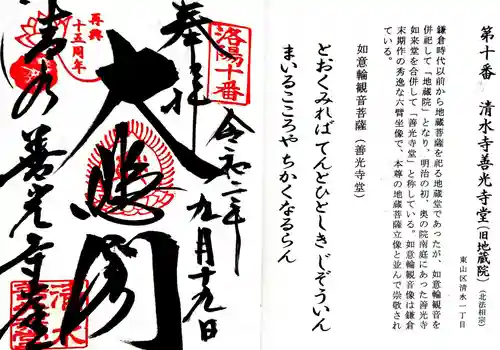 第十番　清水寺善光寺堂(旧地蔵院)(北法相宗)
東山区清水一丁目
鎌倉時代以前から地蔵菩薩を祀る地蔵堂であったが、如意輪観音を
併祀して「地蔵院」となり、明治の初、奥の院南庭にあった善光寺
如来堂を合併して「善光寺堂」と称している。如意輪観音像は鎌倉
末期作の秀逸な六臂坐像で、本尊の地蔵菩薩立像と並んで崇敬され
ている。
如意輪観音菩薩(善光寺堂)
とおくみれば てんとひとしき じぞういん
まいるこころや ちかくなるらん
洛陽十番
奉拝
令和二年九月十九日
大悲閣
再興
十五周年
清水善光寺堂